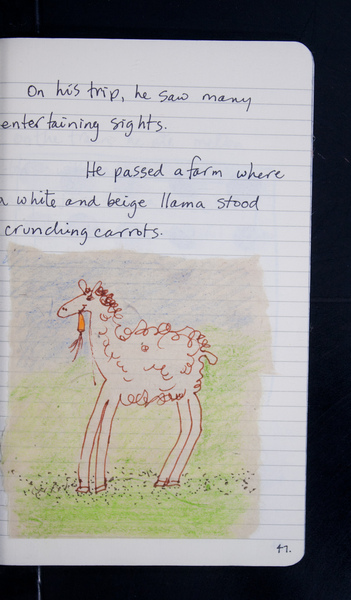 On his trip, he saw many
entertaining sights.
He passed a farm where
a white and beige llama stood
crunching carrots.
47.